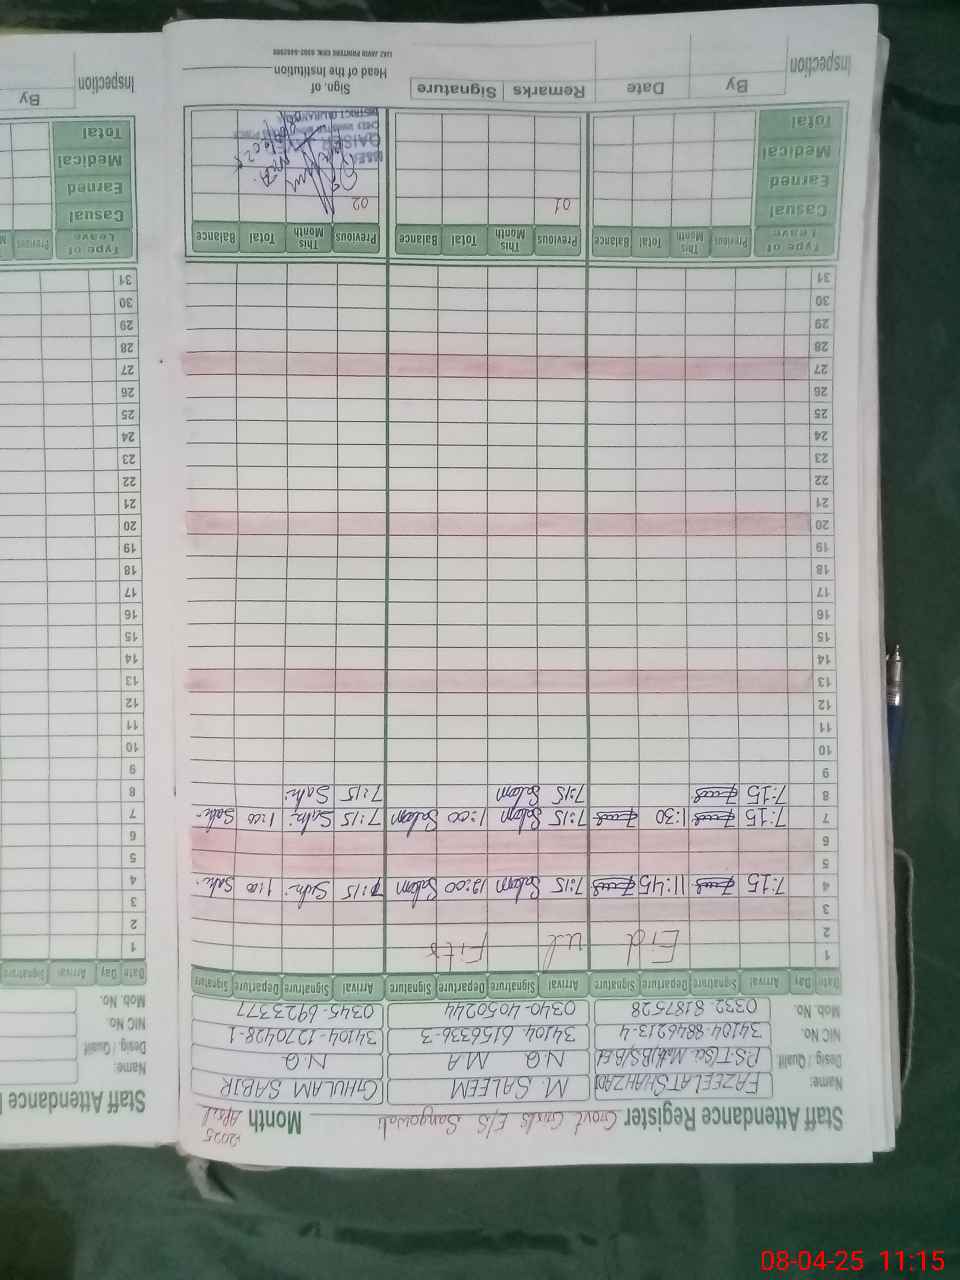 Staff Attendance Register Govt Girls E/S Sangowali Month April 2025
Name: FAZEELAT SHAHZADI M. SALEEM GHULAM SABIR
Desig / Qualif N.Q MA N.Q
NIC No. 34104-8846213-4 34104-6156336-3 34104-1270428-1
Mob. No. 0332-8187528 0340-4050244 0345-6923377
Date Day Arrival Signature Departure Signature Arrival Signature Departure Signature Arrival Signature Departure Signature
1 Eid ul Fitr
2
3
4 7:15 11:45 7:15 Salam 12:00 Salam 7:15 1:00
5
6
7 7:15 1:30 7:15 Salam 1:00 Salam 7:15 1:00
8 7:15 7:15 Salam 7:15
9
10
11
12
13
14
15
16
17
18
19
20
21
22
23
24
25
26
27
28
29
30
31
Type of Leave Previous This Month Total Balance Previous This Month Total Balance Previous This Month Total Balance
Casual 01 02
Earned
Medical
Total
Inspection By Date Remarks Signature
Sign. of
Head of the Institution
Staff Attendance
Name:
Desig / Qualif
NIC No.
Mob. No.
Date Day Arrival Signature
1
2
3
4
5
6
7
8
9
10
11
12
13
14
15
16
17
18
19
20
21
22
23
24
25
26
27
28
29
30
31
Type of Leave Previous
Casual
Earned
Medical
Total
Inspection By
08-04-25 11:15